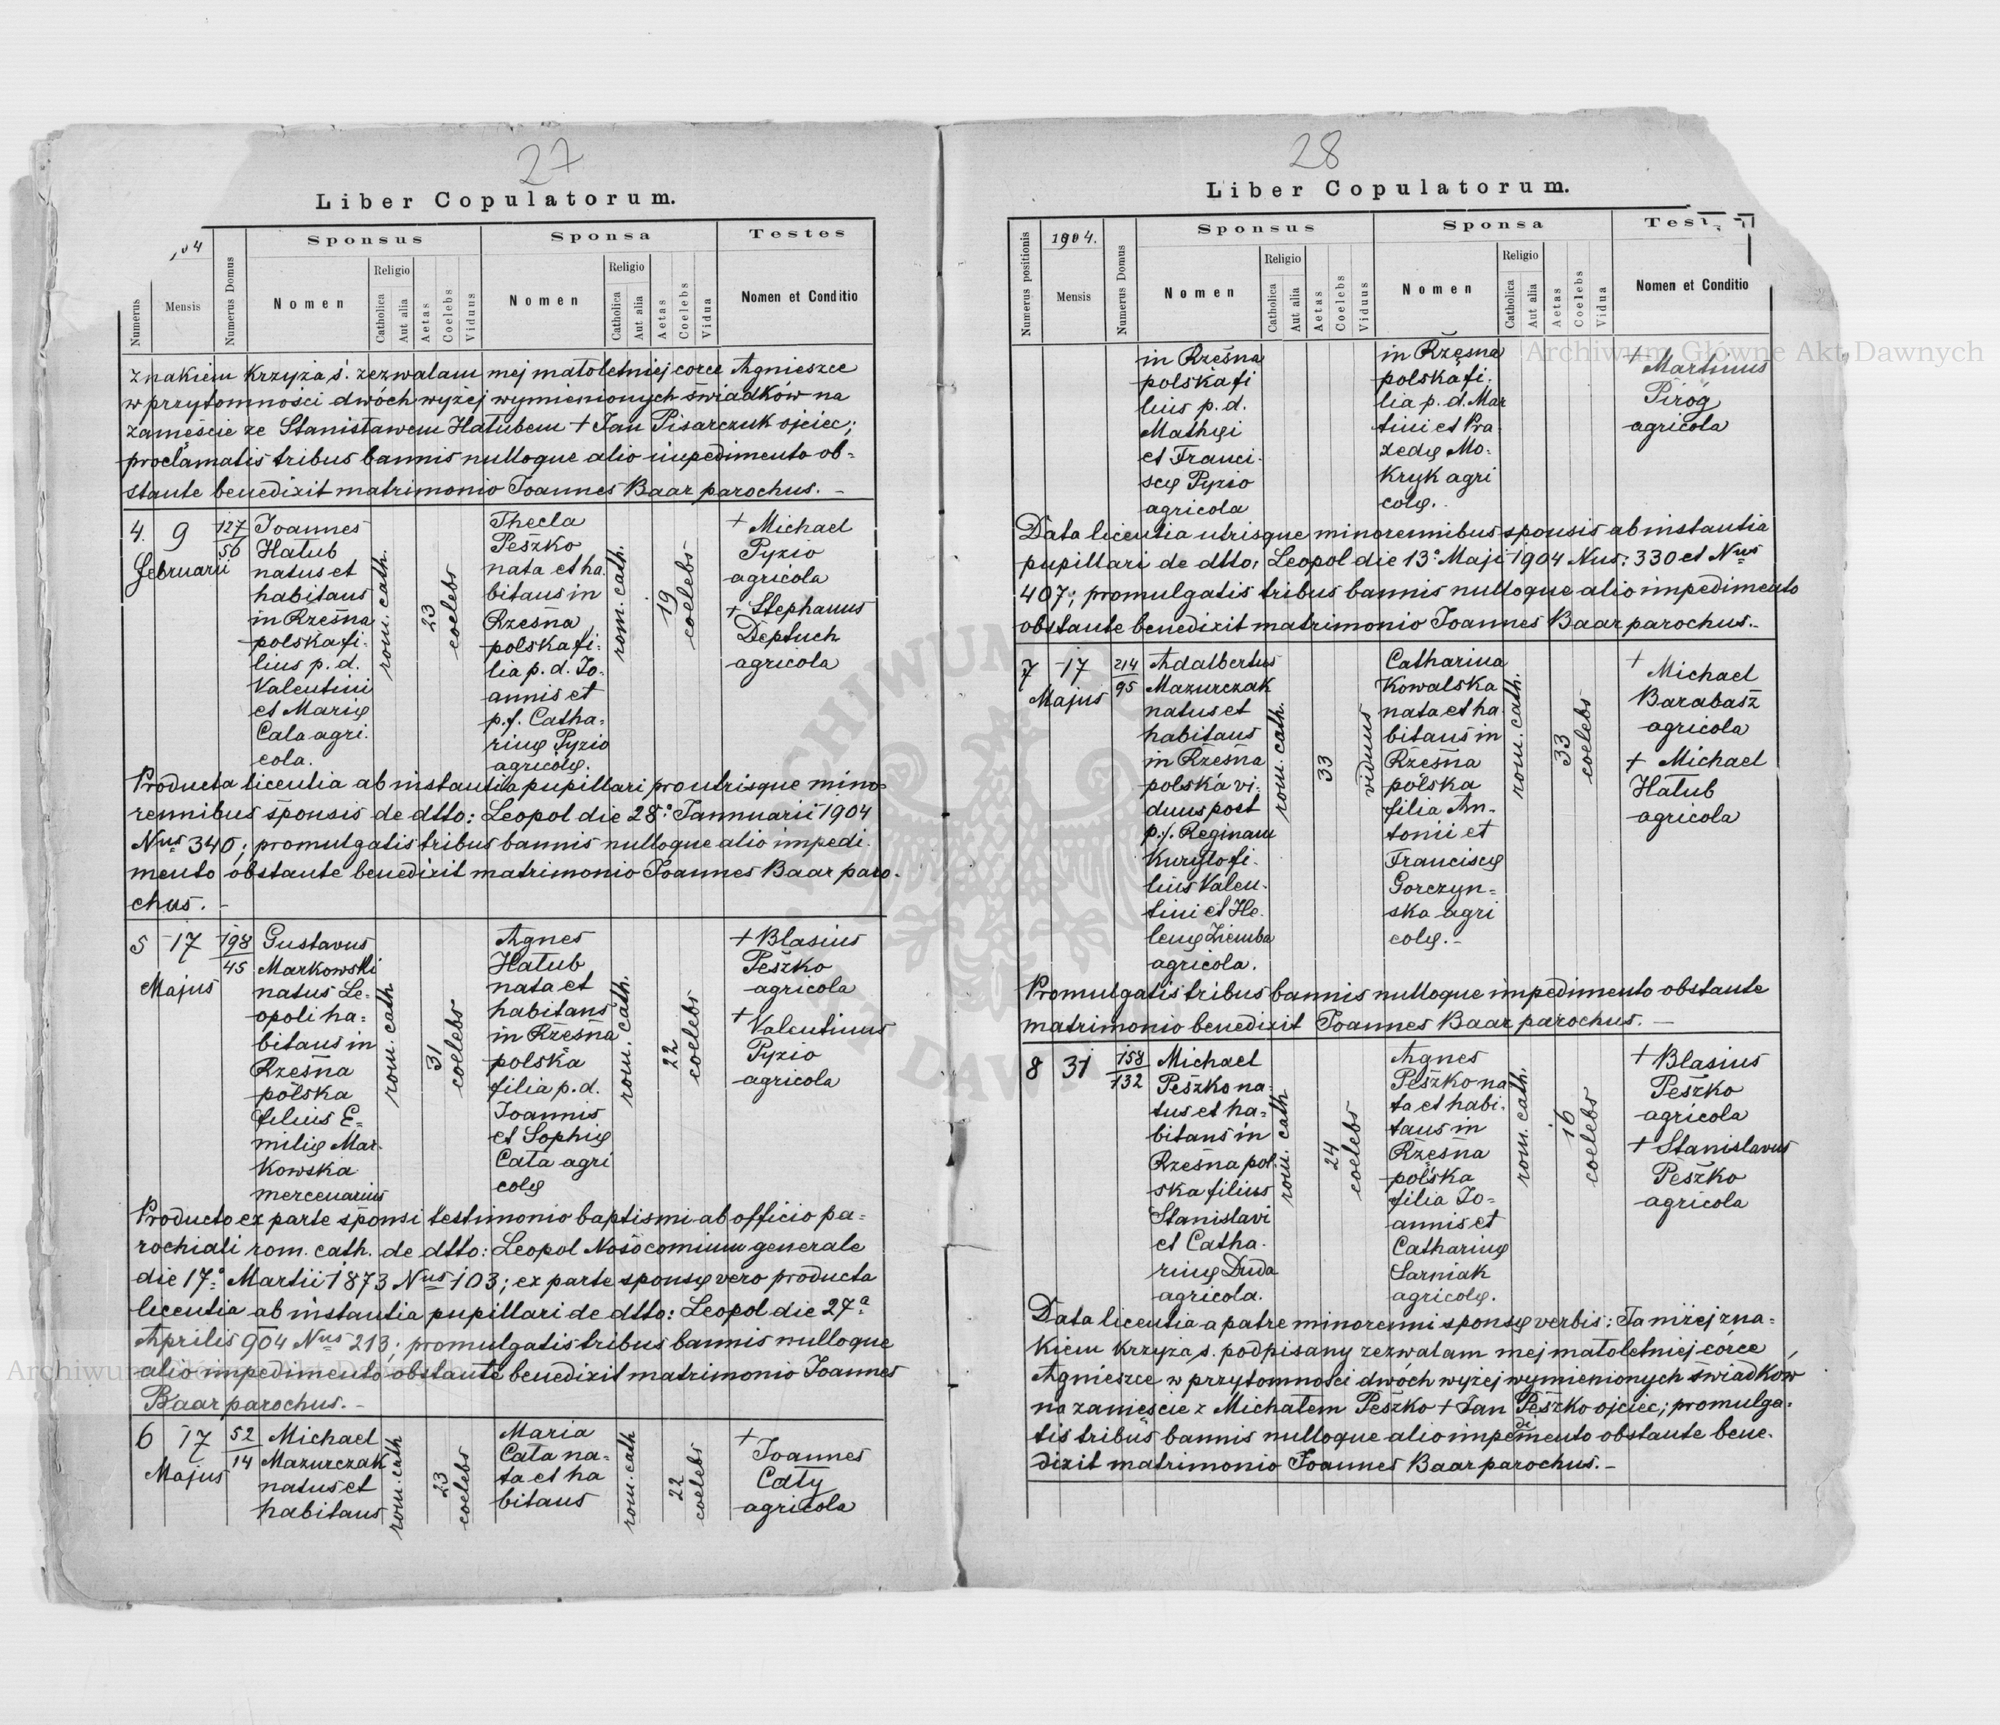 27
Liber Copulatorum.
Numerus
04
Mensis
Numerus Domus
Sponsus
Nomen
Religio
Catholica
Aut alia
Aetas
Coelebs
Viduus
Sponsa
Nomen
Religio
Catholica
Aut alia
Aetas
Coelebs
Vidua
Testes
Nomen et Conditio
znakiem krzyża ś. zezwalam mej małoletniej córce Agnieszce
w przytomności dwóch wyżej wymienionych świadków na
zamęście ze Stanisławem Hałubem + Jan Pisarczuk ojciec;
proclamatis tribus bannis nulloque alio impedimento ob-
stante benedixit matrimonio Joannes Baar parochus. -
4. 9
Februarii
127
56
Joannes
Hałub
natus et
habitans
in Rzęsna
polska fi-
lius p. d.
Valentini
et Marię
Cala agri-
cola.
rom. cath.
23
coelebs
Thecla
Peszko
nata et ha
bitans in
Rzęsna
polska fi-
lia p. d. Jo-
annis et
p. f. Catha-
rinę Pyzio
agricolę.
rom. cath.
19
coelebs
+ Michael
Pyzio
agricola
+ Stephanus
Deptuch
agricola
Producta licentia ab instantia pupillari pro utrisque mino-
rennibus sponsis de dtto: Leopol die 28ª Jannuarii 1904
Nus 340; promulgatis tribus bannis nulloque alio impedi-
mento obstante benedixit matrimonio Joannes Baar paro-
chus. -
5 17
Majus
198
45
Gustavus
Markowski
natus Le-
opoli ha-
bitans in
Rzęsna
polska
filius E-
milię Mar-
kowska
mercenarius
rom. cath.
31
coelebs
Agnes
Hałub
nata et
habitans
in Rzęsna
polska
filia p. d.
Joannis
et Sophię
Cała agri
colę
rom. cath.
22
coelebs
+ Blasius
Peszko
agricola
+ Valentinus
Pyzio
agricola
Producto ex parte sponsi testimonio baptismi ab officio pa-
rochiali rom. cath. de dtto: Leopol Nosocomium generale
die 17ª Martii 1873 Nus 103; ex parte sponsę vero producta
licentia ab instantia pupillari de dtto: Leopol die 27ª
Aprilis 904 Nus 213; promulgatis tribus bannis nulloque
alio impedimento obstante benedixit matrimonio Joannes
Baar parochus. -
6 17
Majus
52
14
Michael
Mazurczak
natus et
habitans
rom. cath
23
coelebs
Maria
Cała na-
ta et ha
bitans
rom. cath
22
coelebs
+
Joannes
Cały
agricola
28
Liber Copulatorum.
Numerus positionis
1904.
Mensis
Numerus Domus
Sponsus
Nomen
Religio
Catholica
Aut alia
Aetas
Coelebs
Viduus
Sponsa
Nomen
Religio
Catholica
Aut alia
Aetas
Coelebs
Vidua
Test
Nomen et Conditio
in Rzęsna
polska fi
lius p. d.
Mathęi
et Franci-
scę Pyzio
agricola
in Rzęsna
polska fi-
lia p. d. Mar
tini et Pra-
xedę Mo-
kryk agri
colę.
+ Martinus
Piróg
agricola
Data licentia utrisque minorennibus sponsis ab instantia
pupillari de dtto: Leopol die 13ª Maji 1904 Nus: 330 et Nus
407; promulgatis tribus bannis nulloque alio impedimento
obstante benedixit matrimonio Joannes Baar parochus. -
7 17
Majus
214
95
Adalbertus
Mazurczak
natus et
habitans
in Rzęsna
polska vi-
duus post
p. f. Reginam
Kuryło fi-
lius Valen-
tini et He-
lenę Ziemba
agricola.
rom. cath.
33
viduus
Catharina
Kowalska
nata et ha
bitans in
Rzęsna
polska
filia An-
tonii et
Franciscę
Gorczyn-
ska agri
colę. -
rom. cath.
33
coelebs
+
Michael
Barabasz
agricola
+ Michael
Hałub
agricola
Promulgatis tribus bannis nulloque impedimento obstante
matrimonio benedixit Joannes Baar parochus. -
8 31
158
132
Michael
Peszko na-
tus et ha-
bitans in
Rzęsna pol-
ska filius
Stanislavi
et Catha-
rinę Duda
agricola.
rom. cath
24
coelebs
Agnes
Peszko na
ta et habi-
tans in
Rzęsna
polska
filia Jo-
annis et
Catharinę
Sarniak
agricolę.
rom. cath.
16
coelebs
+ Blasius
Peszko
agricola
+ Stanislavus
Peszko
agricola
Data licentia a patre minorenni sponsę verbis: Ja niżej zna-
kiem krzyża ś. podpisany zezwalam mej małoletniej córce
Agnieszce w przytomności dwóch wyżej wymienionych świadków
na zamęście z Michałem Peszko + Jan Peszko ojciec; promulga-
tis tribus bannis nulloque alio impedimento obstante bene-
dixit matrimonio Joannes Baar parochus. -
Archiwum Główne Akt Dawnych
Archiwum Główne Akt Dawnych